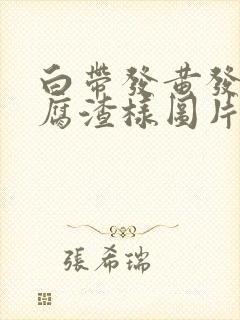 白帶發黃發
腐渣樣圖片
張希瑞